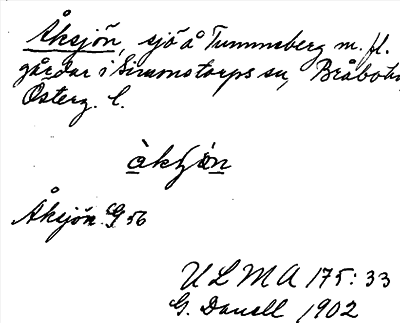 Åksjön, sjö å Tummsberg m. fl.
gårdar i Simonstorps sn, Bråbo
Österg. l.
åkʃön
Åksjön. G 56
ULMA 175: 33
G. Danell 1902